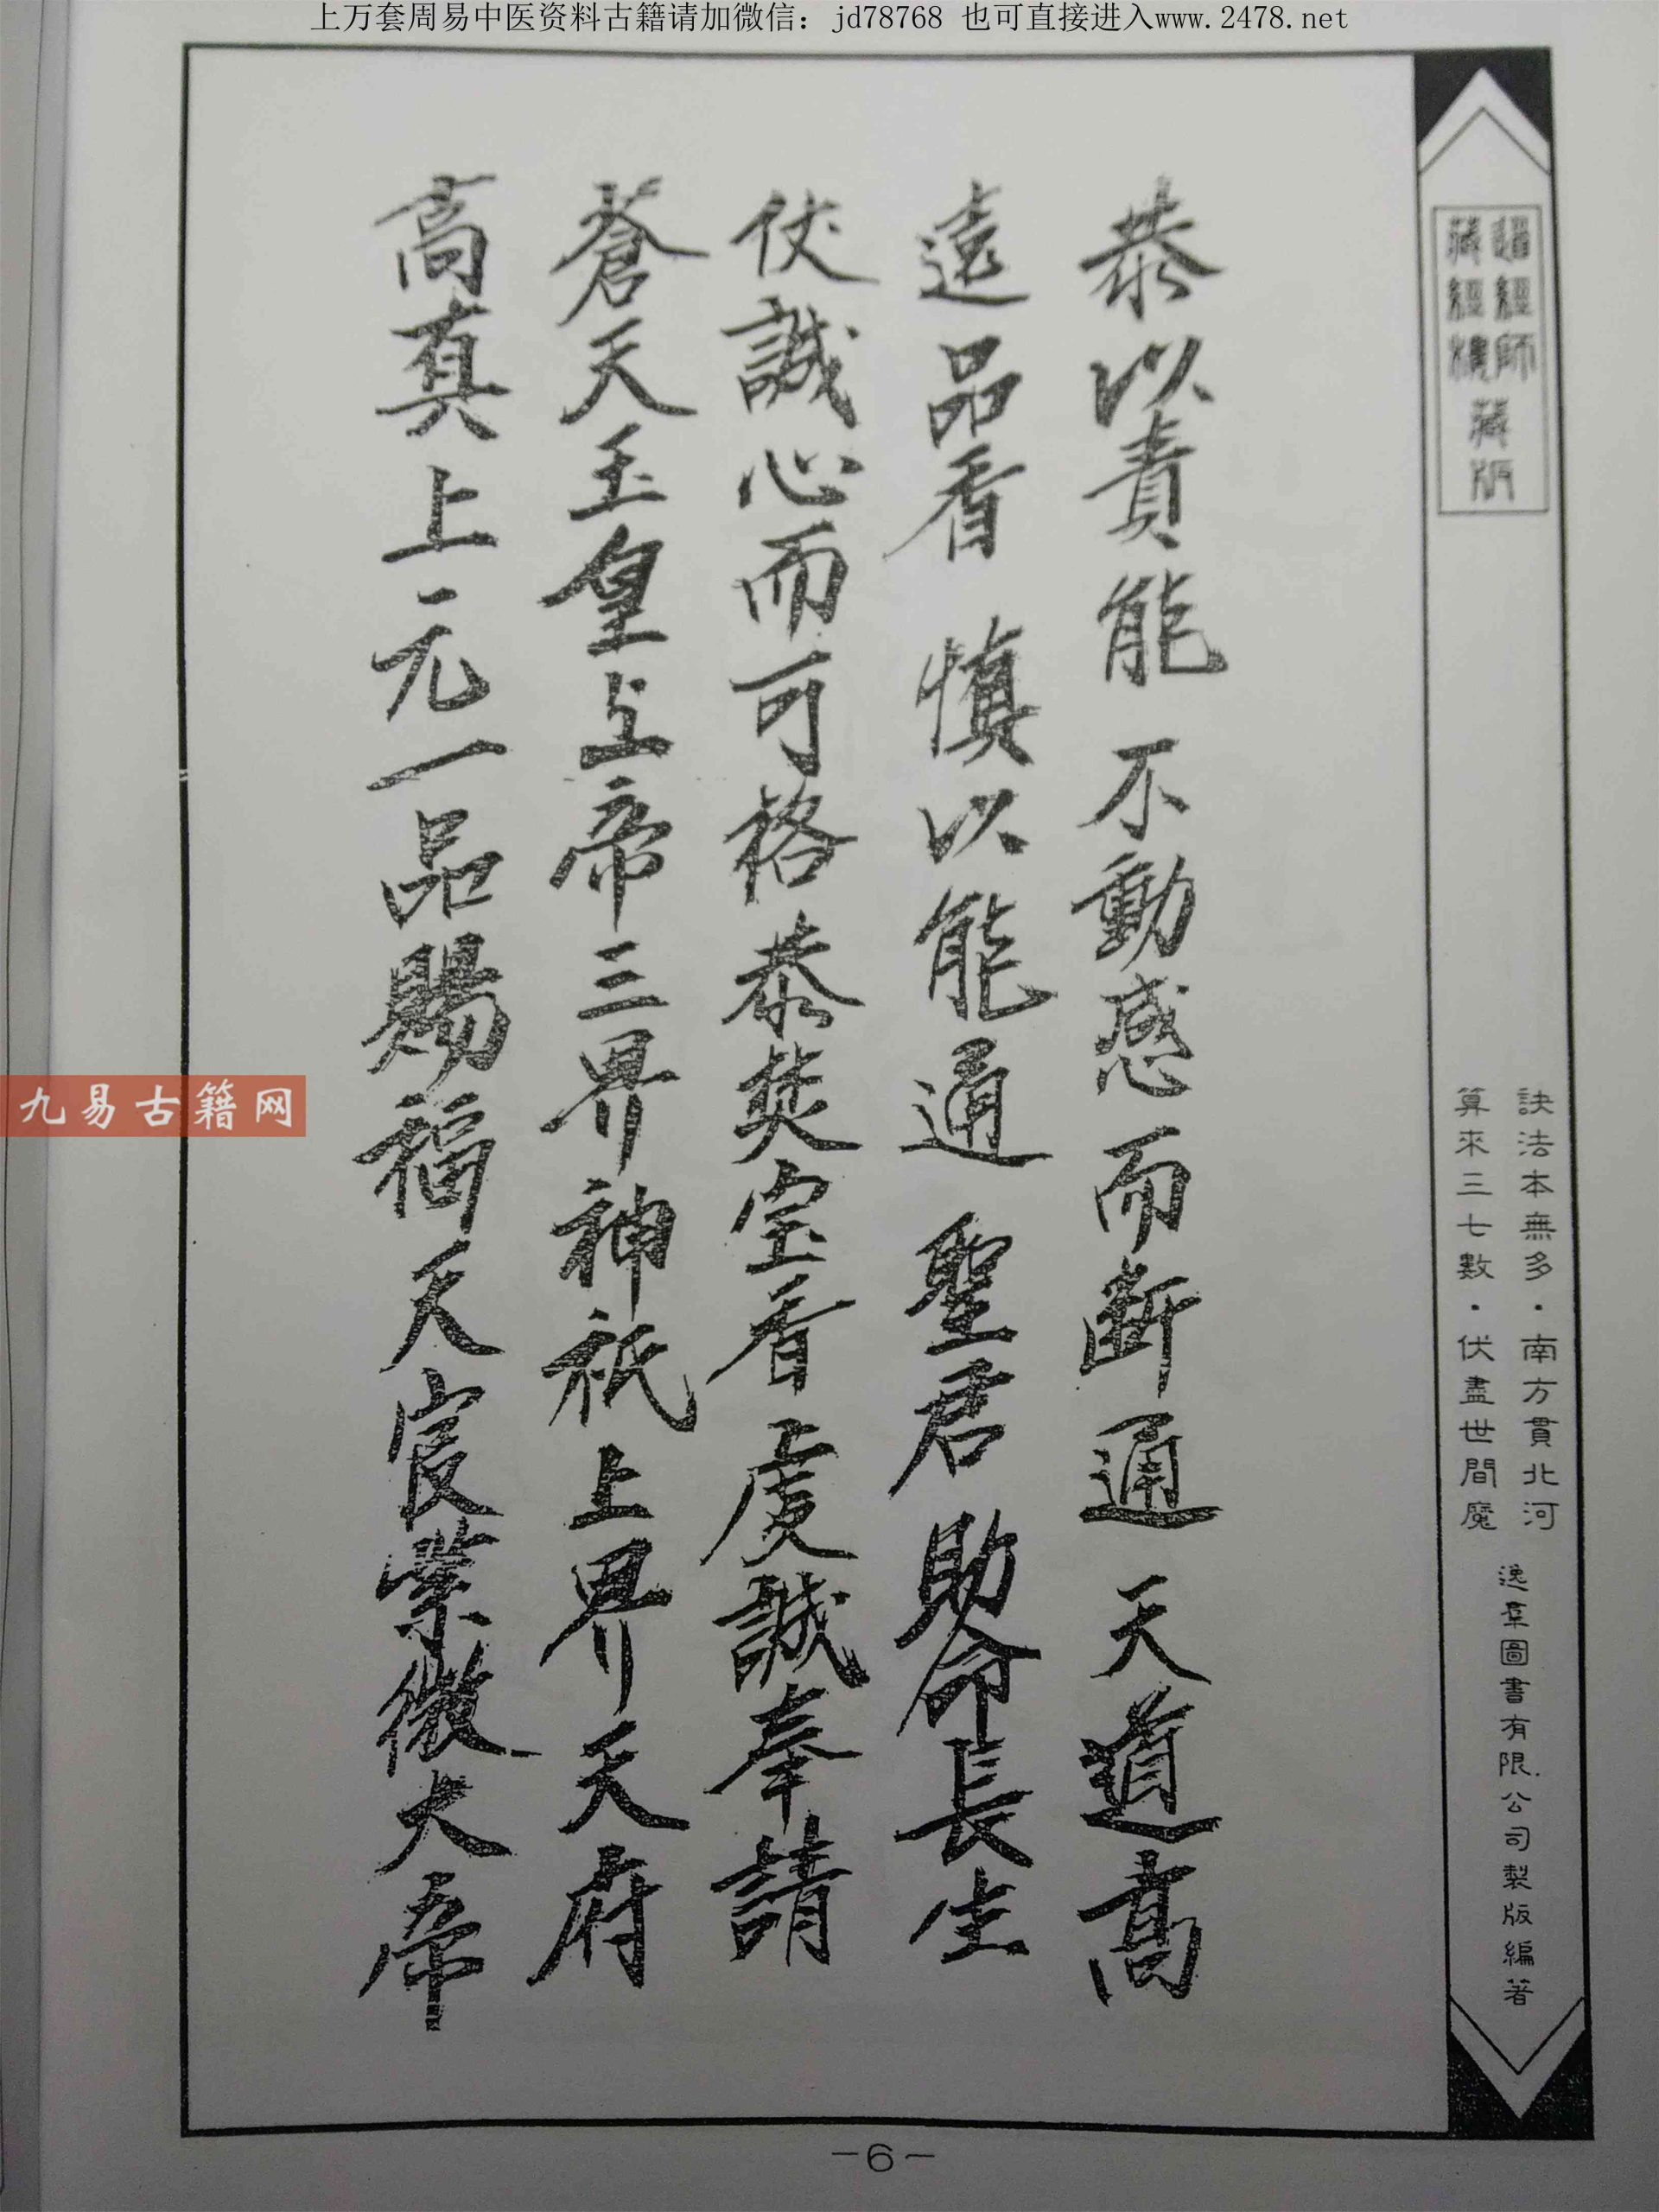 上万套周易中医资料古籍请加微信：jd78768 也可直接进入www.2478.net
道經師
藏經樓
藏版
訣法本無多·南方貫北河
算來三七數·伏盡世間魔
逸羣圖書有限公司製版編著
恭以責能不動感而斷通天道高
遠品看慎以能通聖君助命長生
伏誠心而可格恭焚宝香虔誠奉請
蒼天玉皇上帝三界神祇上界天府
高真上元一品賜福天宸紫微大帝
九易古籍网
-6-